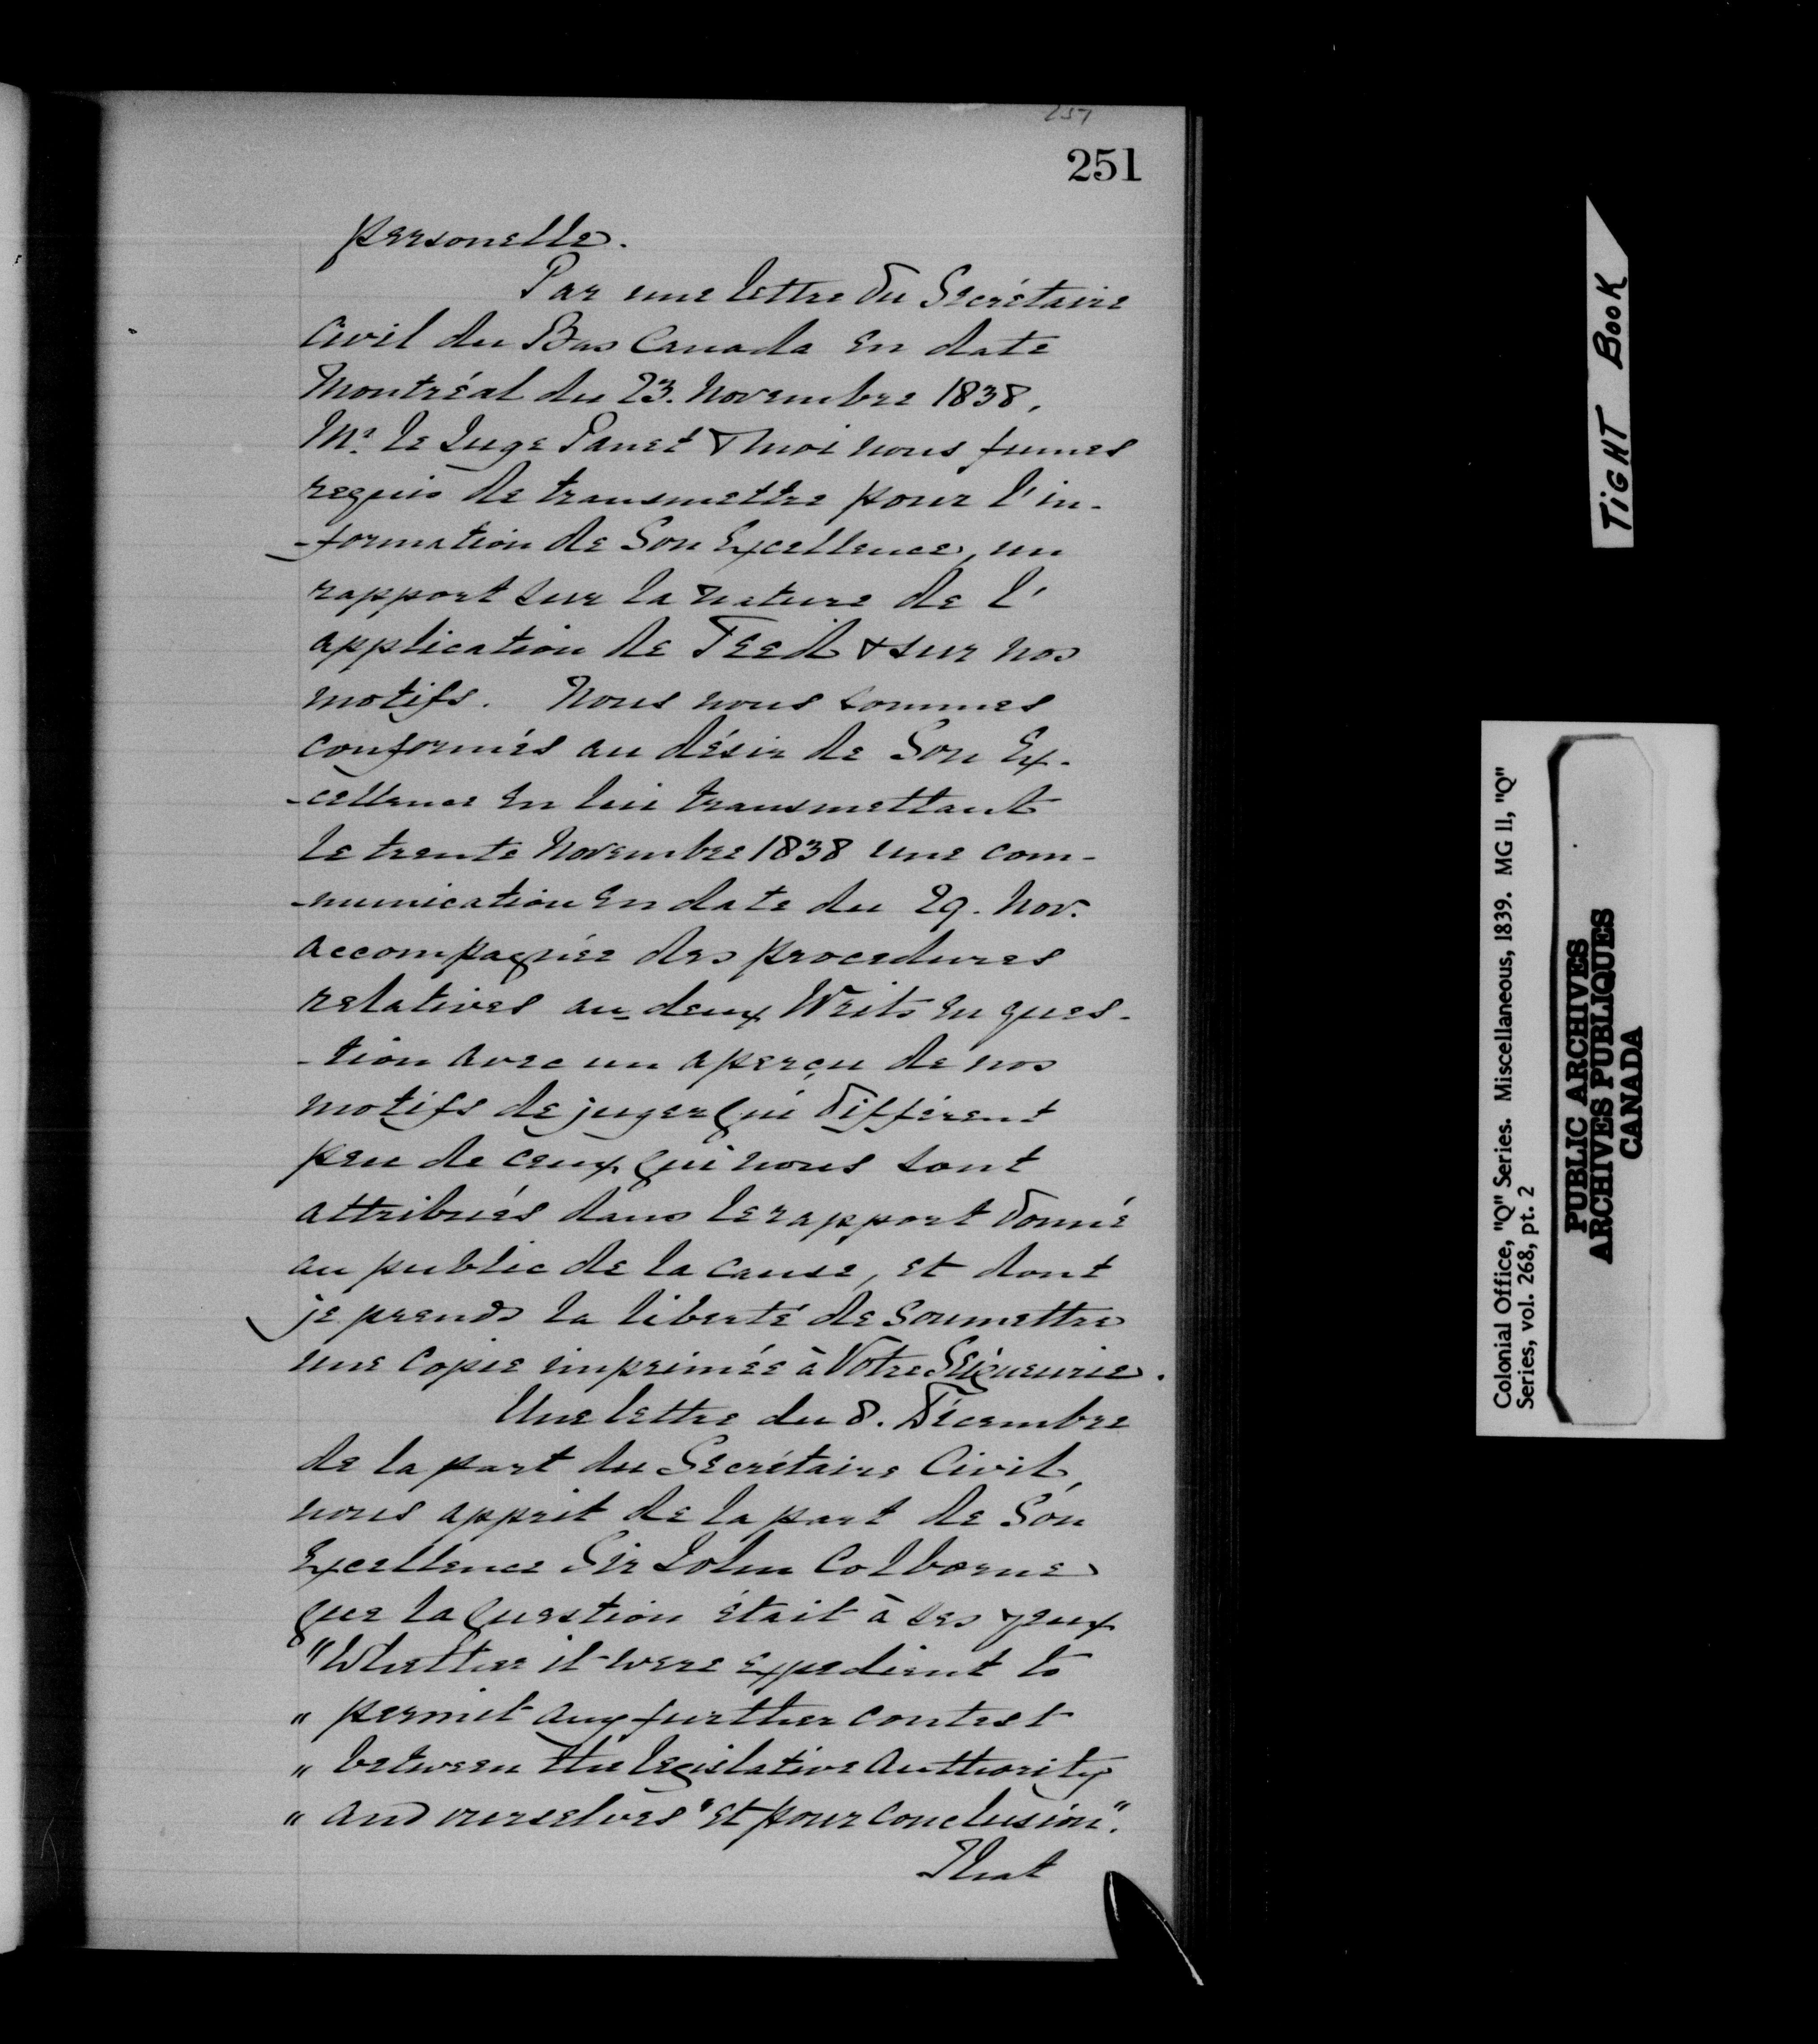 251
251
personelle.
Par une lettre du Secrétaire
Civil du Bas Canada en date
Montréal du 23. Novembre 1838,
Mr. le Juge Panet & moi nous fumes
requis de transmettre pour l'in-
-formation de Son Excellence, un
rapport sur la nature de l'
application de Teed & sur nos
motifs. Nous nous sommes
conformés au désir de Son Ex-
-cellence en lui transmettant
le trente Novembre 1838 une com-
-munication en date du 29. Nov.
accompagnée des procedures
relatives au deux Writs en ques-
-tion avec un aperçu de nos
motifs de juger qui différent
peu de ceux qui nous sont
attribués dans le rapport donné
au public de la cause, et dont
je prends la liberté de soumettre
une copie imprimée à Votre Seigneurie.
Une lettre du 8. Décembre
de la part du Secrétaire Civil,
nous apprit de la part de Son
Excellence Sir John Colborne
que la question était à ses yeux
"Whether it were expedient to
" permit any further contest
" between the legislative authority
" and ourselves" et pour conclusion".
That
TIGHT BOOK
Colonial Office, "Q" Series. Miscellaneous, 1839. MG 11, "Q"
Series, vol. 268, pt. 2
PUBLIC ARCHIVES
ARCHIVES PUBLIQUES
CANADA